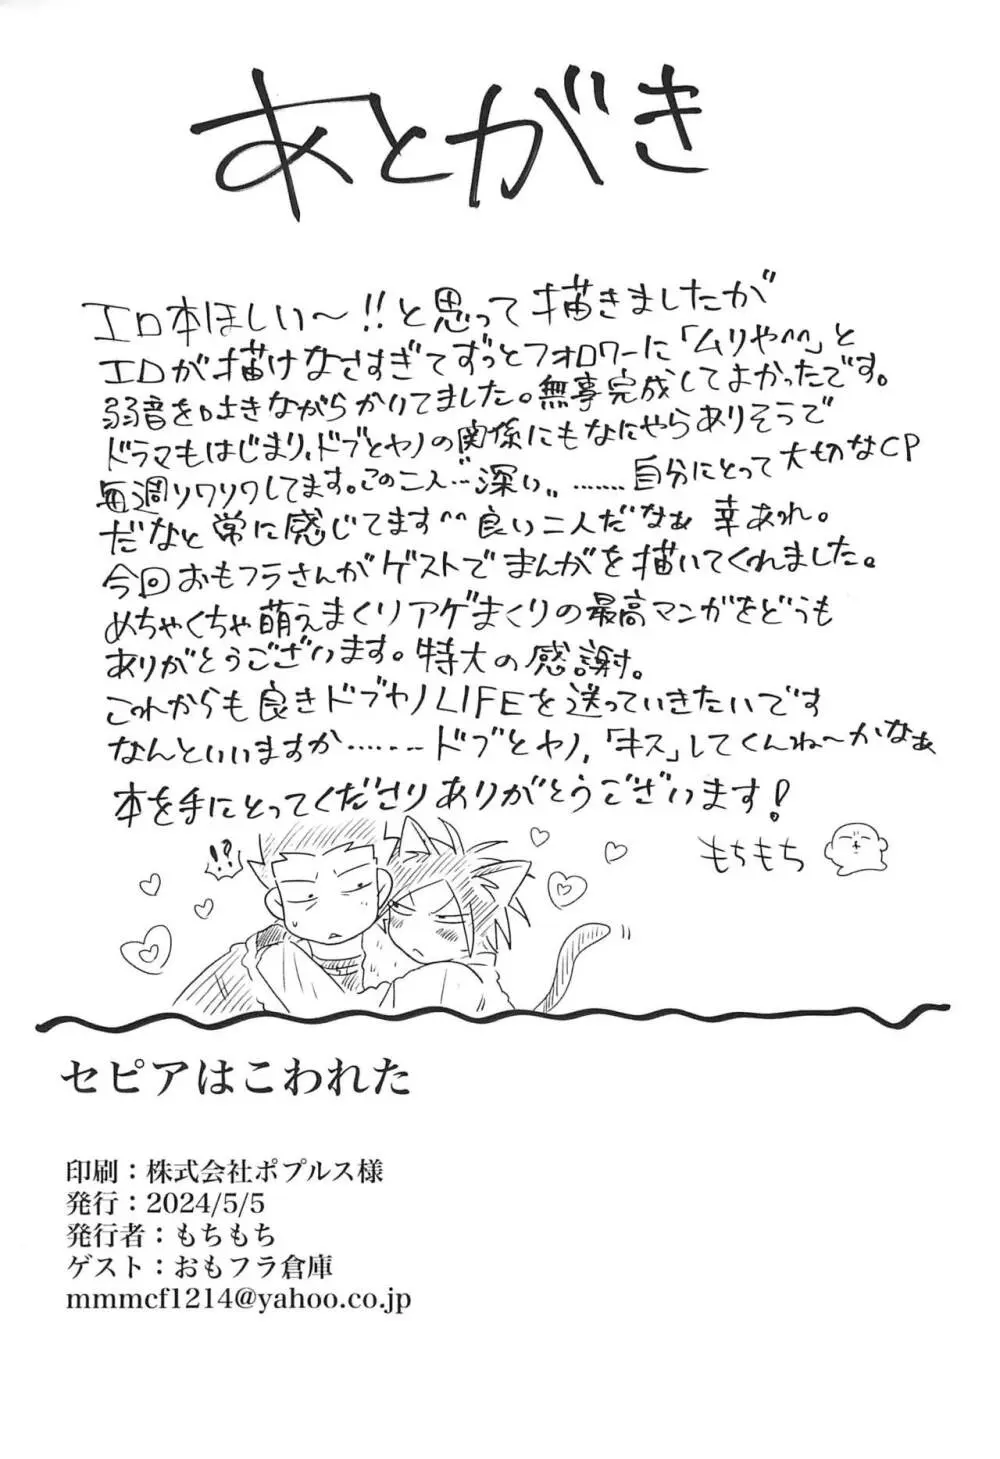 あとがき
エロ本ほしい～!!と思って描きましたが
エロが描けなさすぎてずっとフォロワーに「ムリや^^」と
弱音を吐きながらかいてました。無事完成してよかったです。
ドラマもはじまり、ドブとヤノの関係にもなにやらありそうで
毎週ソワソワしてます。この二人…深い……自分にとって大切なCP
だなと常に感じてます^^良い二人だなぁ 幸あれ。
今回おもフラさんがゲストでまんがを描いてくれました。
めちゃくちゃ萌えまくりアゲまくりの最高マンガをどうも
ありがとうございます。特大の感謝。
これからも良きドブヤノLIFEを送っていきたいです
なんといいますか……ドブとヤノ,「キス」してくんね～かなぁ
本を手にとってくださりありがとうございます!
もちもち
!?
セピアはこわれた
印刷：株式会社ポプルス様
発行：2024/5/5
発行者：もちもち
ゲスト：おもフラ倉庫
mmmcf1214@yahoo.co.jp